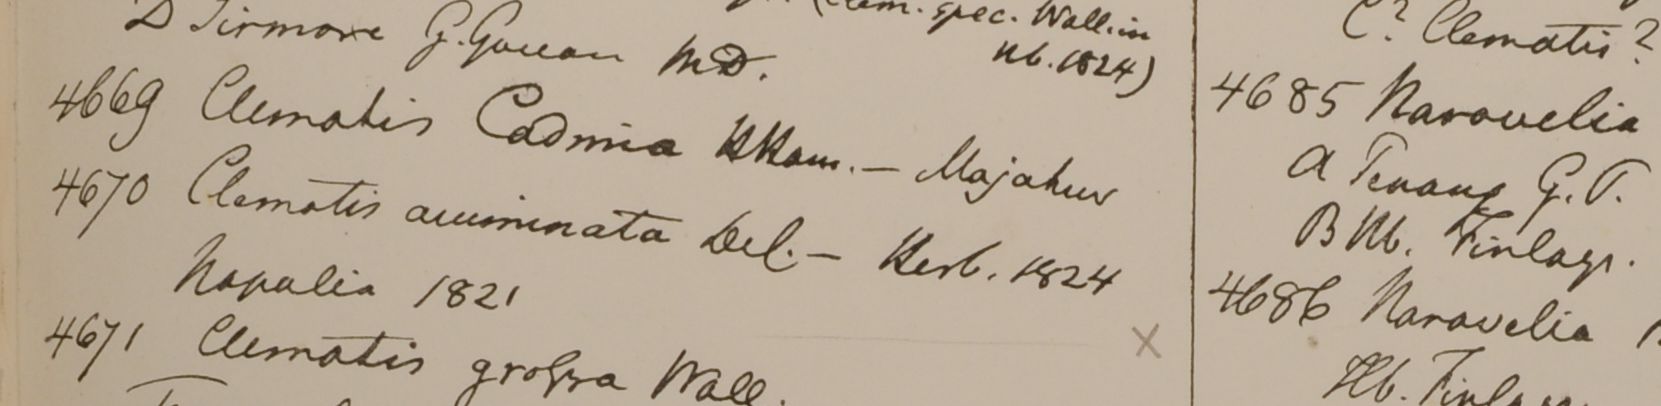 (Clem. spec. Wall. in
hb. 1824)
D Sirmore G. Govan MD.
4669 Clematis Cadmia HHam. — Majahur
4670 Clematis acuminata Del. — Herb. 1824
Napalia 1821
4671 Clematis grossa Wall.
C? Clematis?
4685 Naravelia
a Penang G. P.
B Hb. Finlays.
4686 Naravelia
Hb. Finlays